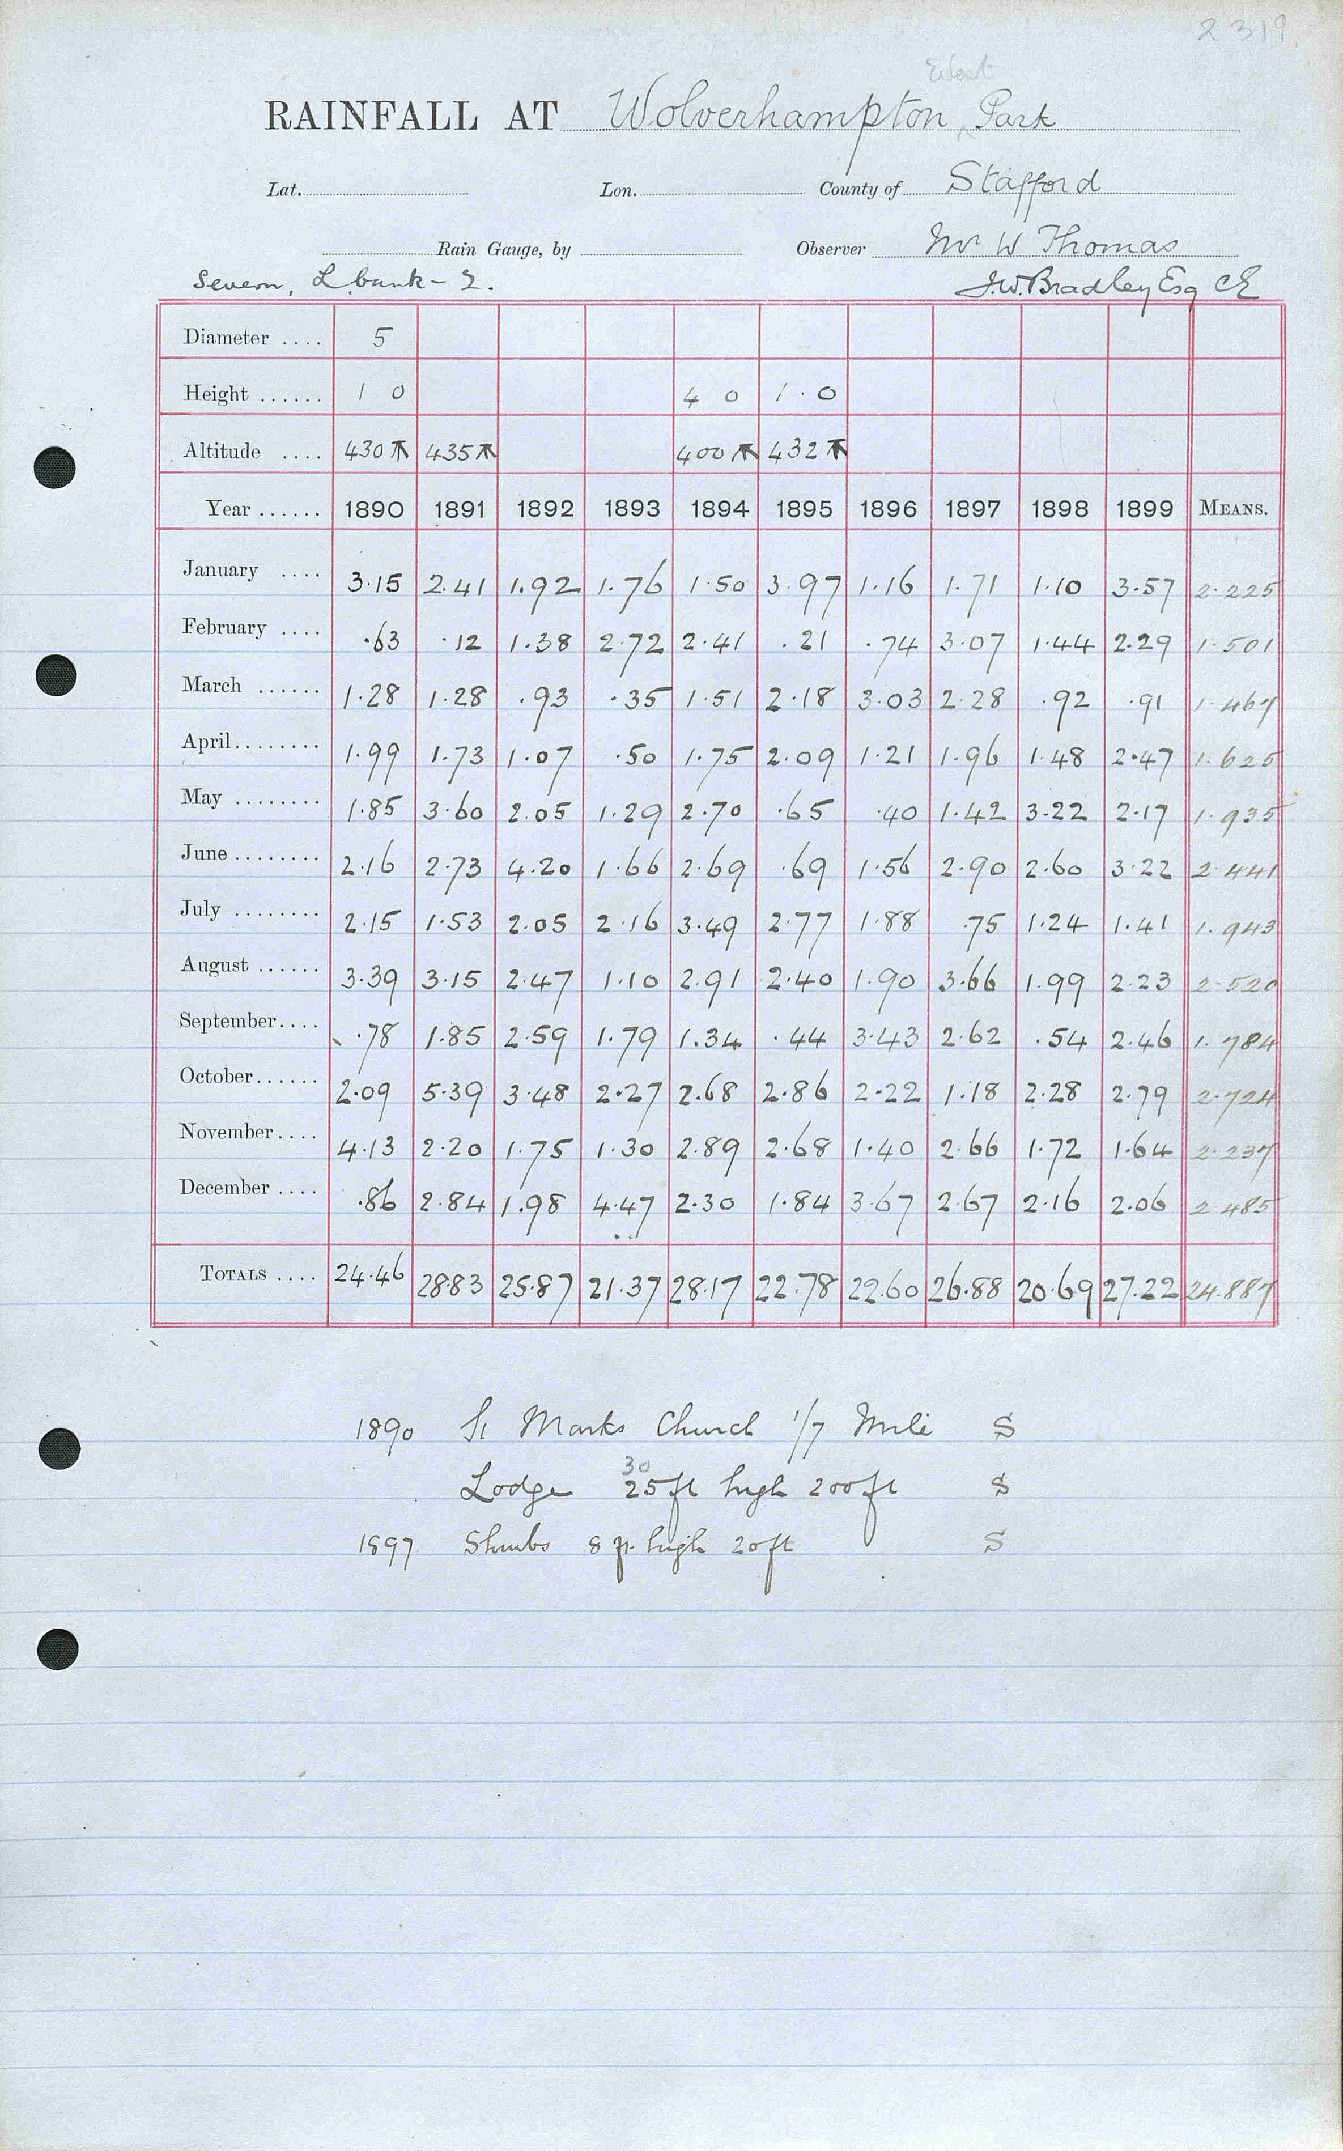 2319
West
RAINFALL AT Wolverhampton Park
Lat. Lon. County of Stafford
Rain Gauge, by Observer Mr W Thomas
Severn, L bank - 2. J.W. Bradley Esq CE
Diameter .... 5
Height ...... 1 0 4 0 1.0
Altitude .... 430 435 400 432
Year ...... 1890 1891 1892 1893 1894 1895 1896 1897 1898 1899 MEANS.
January .... 3.15 2.41 1.92 1.76 1.50 3.97 1.16 1.71 1.10 3.57 2.225
February .... .63 .12 1.38 2.72 2.41 .21 .74 3.07 1.44 2.29 1.501
March ...... 1.28 1.28 .93 .35 1.51 2.18 3.03 2.28 .92 .91 1.467
April........ 1.99 1.73 1.07 .50 1.75 2.09 1.21 1.96 1.48 2.47 1.625
May ........ 1.85 3.60 2.05 1.29 2.70 .65 .40 1.42 3.22 2.17 1.935
June ........ 2.16 2.73 4.20 1.66 2.69 .69 1.56 2.90 2.60 3.22 2.441
July ........ 2.15 1.53 2.05 2.16 3.49 2.77 1.88 .75 1.24 1.41 1.943
August ...... 3.39 3.15 2.47 1.10 2.91 2.40 1.90 3.66 1.99 2.23 2.520
September.... .78 1.85 2.59 1.79 1.34 .44 3.43 2.62 .54 2.46 1.784
October...... 2.09 5.39 3.48 2.27 2.68 2.86 2.22 1.18 2.28 2.79 2.724
November.... 4.13 2.20 1.75 1.30 2.89 2.68 1.40 2.66 1.72 1.64 2.237
December .... .86 2.84 1.98 4.47 2.30 1.84 3.67 2.67 2.16 2.06 2.485
TOTALS .... 24.46 28.83 25.87 21.37 28.17 22.78 22.60 26.88 20.69 27.22 24.887
1890 St Marks Church 1/7 Mile S
30
Lodge 25ft high 200ft S
1897 Shrubs 8 ft. high 20ft S